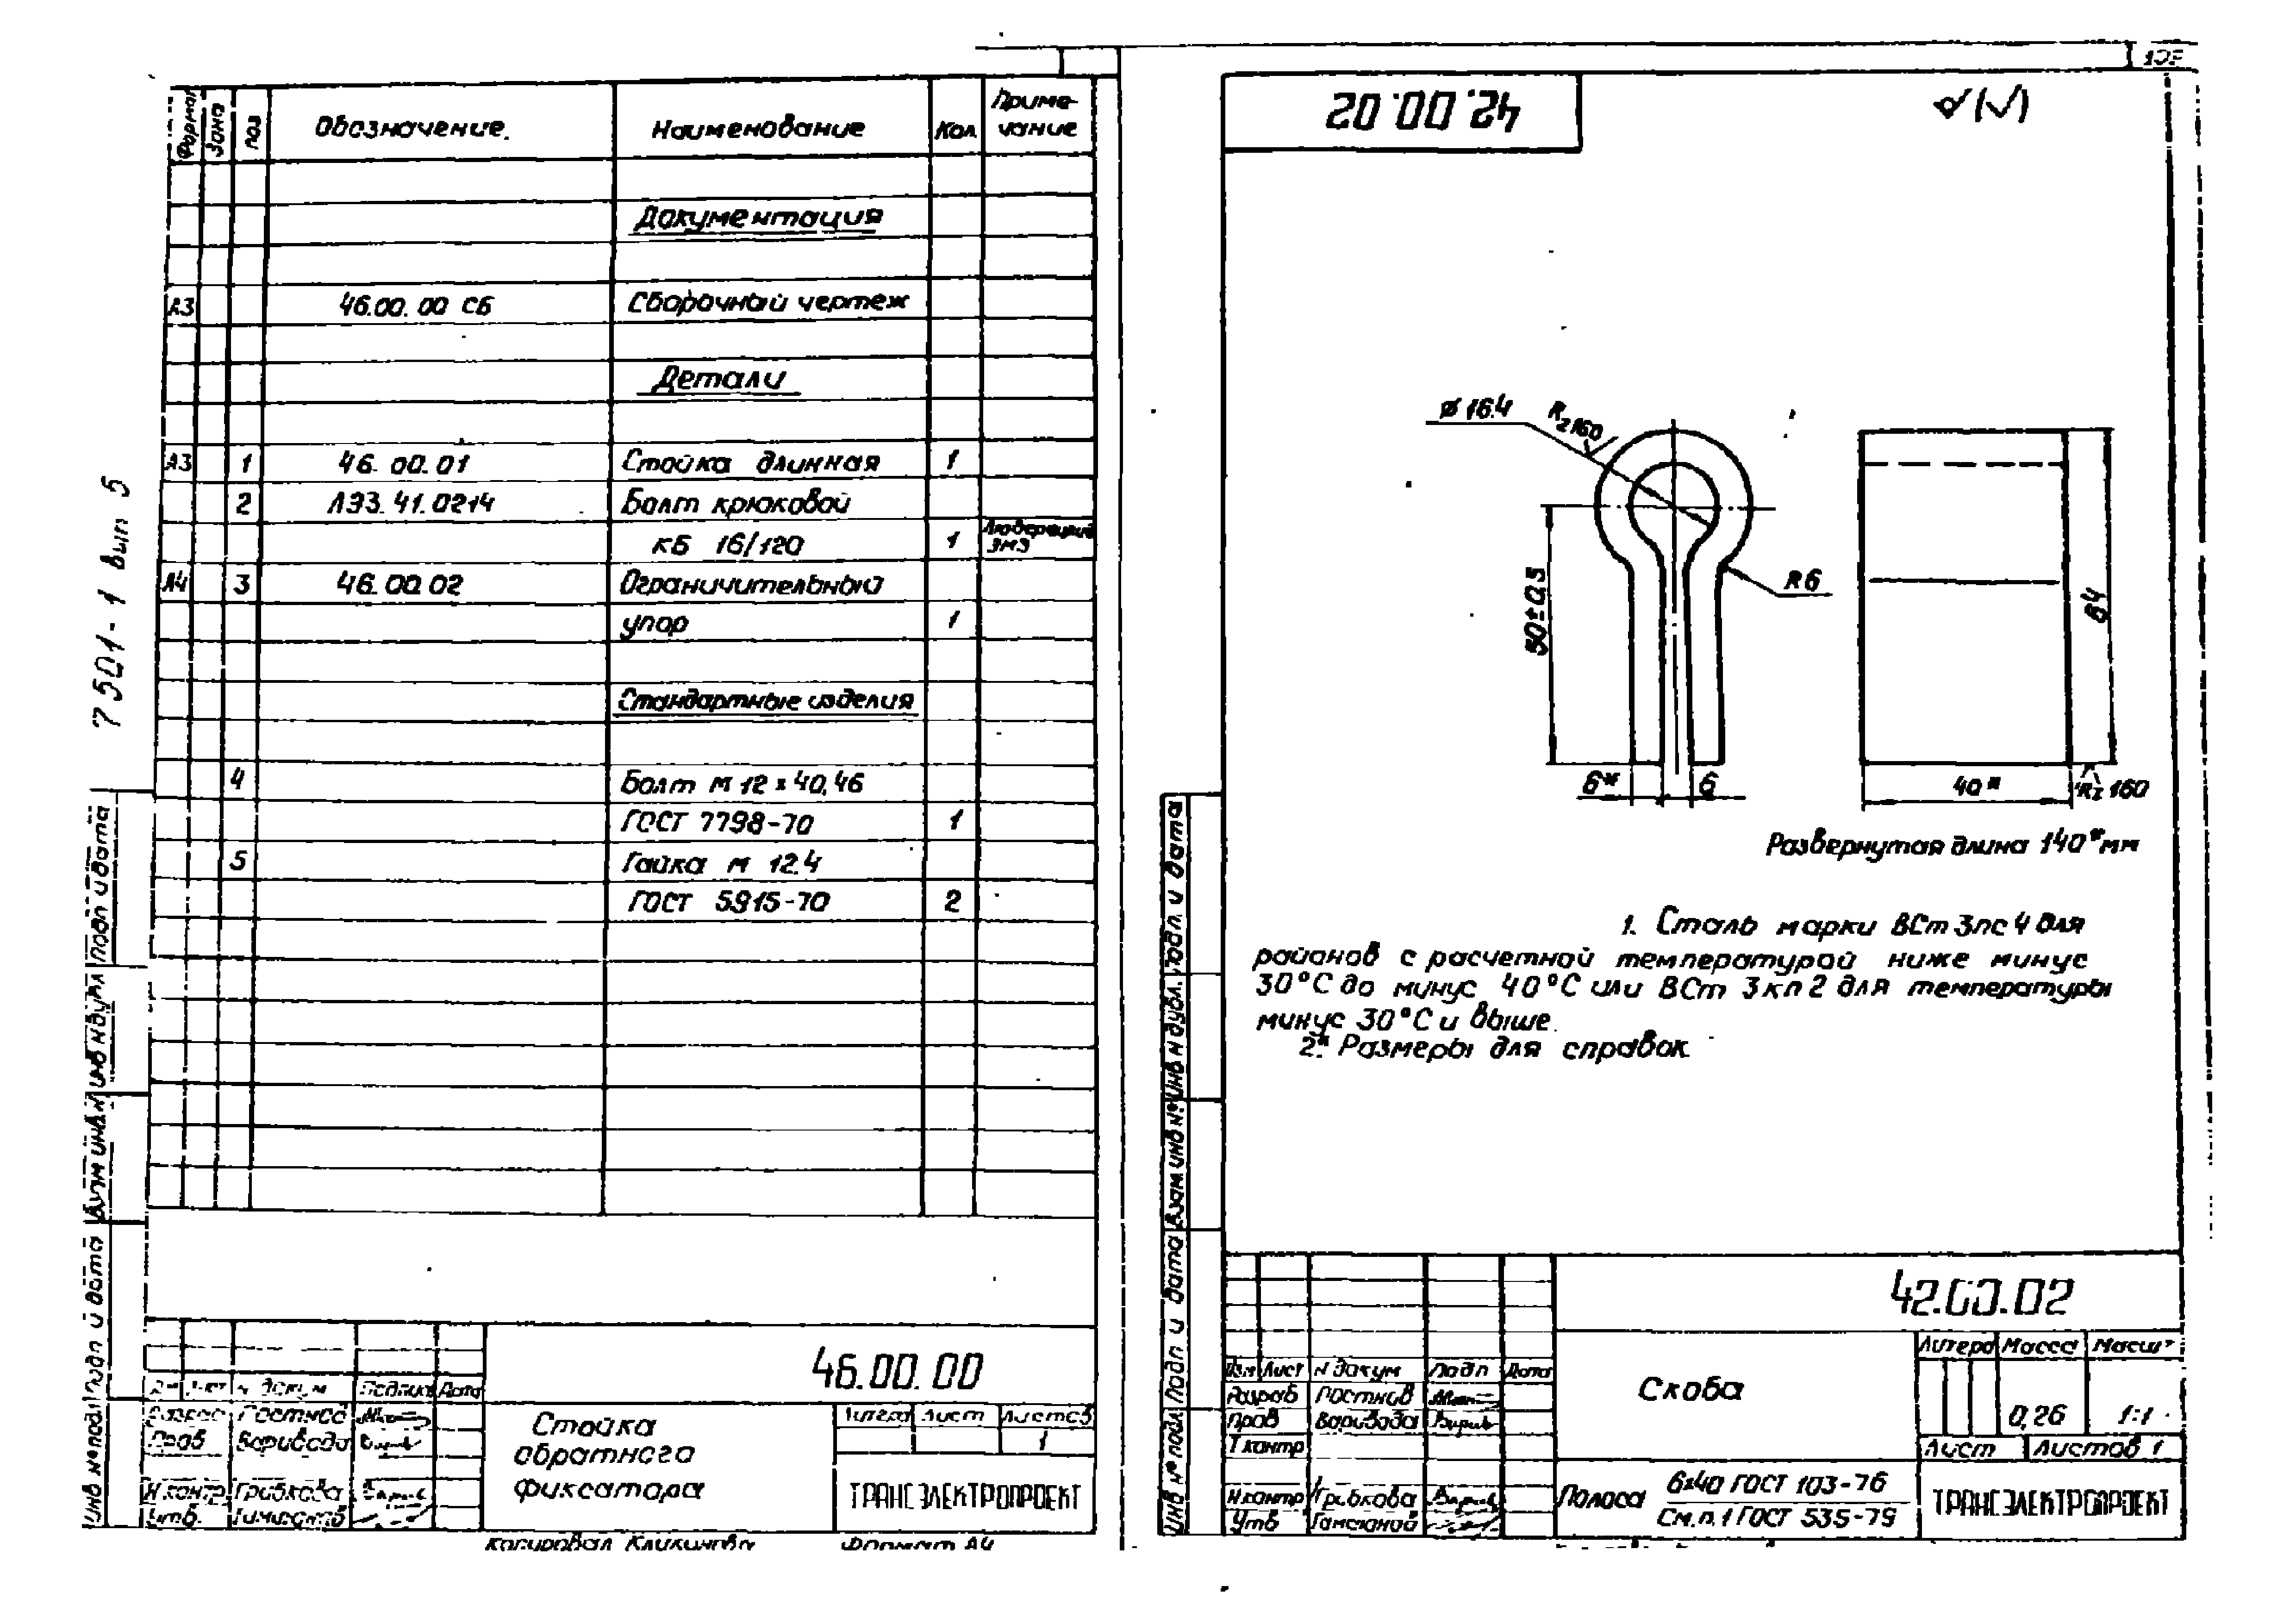 Формат Зона Поз Обозначение. Наименование Кол. Приме-
чание
Документация
А3 46.00.00 СБ Сборочный чертеж
Детали
А3 1 46.00.01 Стойка длинная 1
2 ЛЭЗ.41.0214 Болт крюковой
КБ 16/120 1 Люберецкий
ЭМЗ
А4 3 46.00.02 Ограничительный
упор 1
Стандартные изделия
4 Болт М 12 × 40,46
ГОСТ 7798-70 1
5 Гайка М 12.4
ГОСТ 5915-70 2
7 501-1 вып 5
Подп и дата
Инв N дубл
Взам инв N
Подп и дата
Инв № подл
46.00.00
Изм Лист N докум Подпись Дата
Разраб Постнов
Пров Варивода
Н.контр Грибкова
Утв.
Стойка
обратного
фиксатора
Литера Лист Листов
1
ТРАНСЭЛЕКТРОПРОЕКТ
Копировал Формат А4
42.00.02
√(√)
⌀ 16.4
Rz 160
R6
50±0,5
6*
6
84
40*
Rz 160
Развернутая длина 140*мм
1. Сталь марки ВСт 3пс 4 для
районов с расчетной температурой ниже минус
30°С до минус 40°С или ВСт 3кп2 для температуры
минус 30°С и выше.
2.* Размеры для справок
Подп. и дата
Инв N дубл.
Взам инв №
Подп и дата
Инв № подл
42.00.02
Изм Лист N докум Подп Дата
Разраб Постнов
Пров Варивода
Т.контр
Н.контр Грибкова
Утв
Скоба
Литера Масса Масшт
0,26 1:1
Лист Листов 1
Полоса 6×40 ГОСТ 103-76
См.п.1 ГОСТ 535-79
ТРАНСЭЛЕКТРОПРОЕКТ